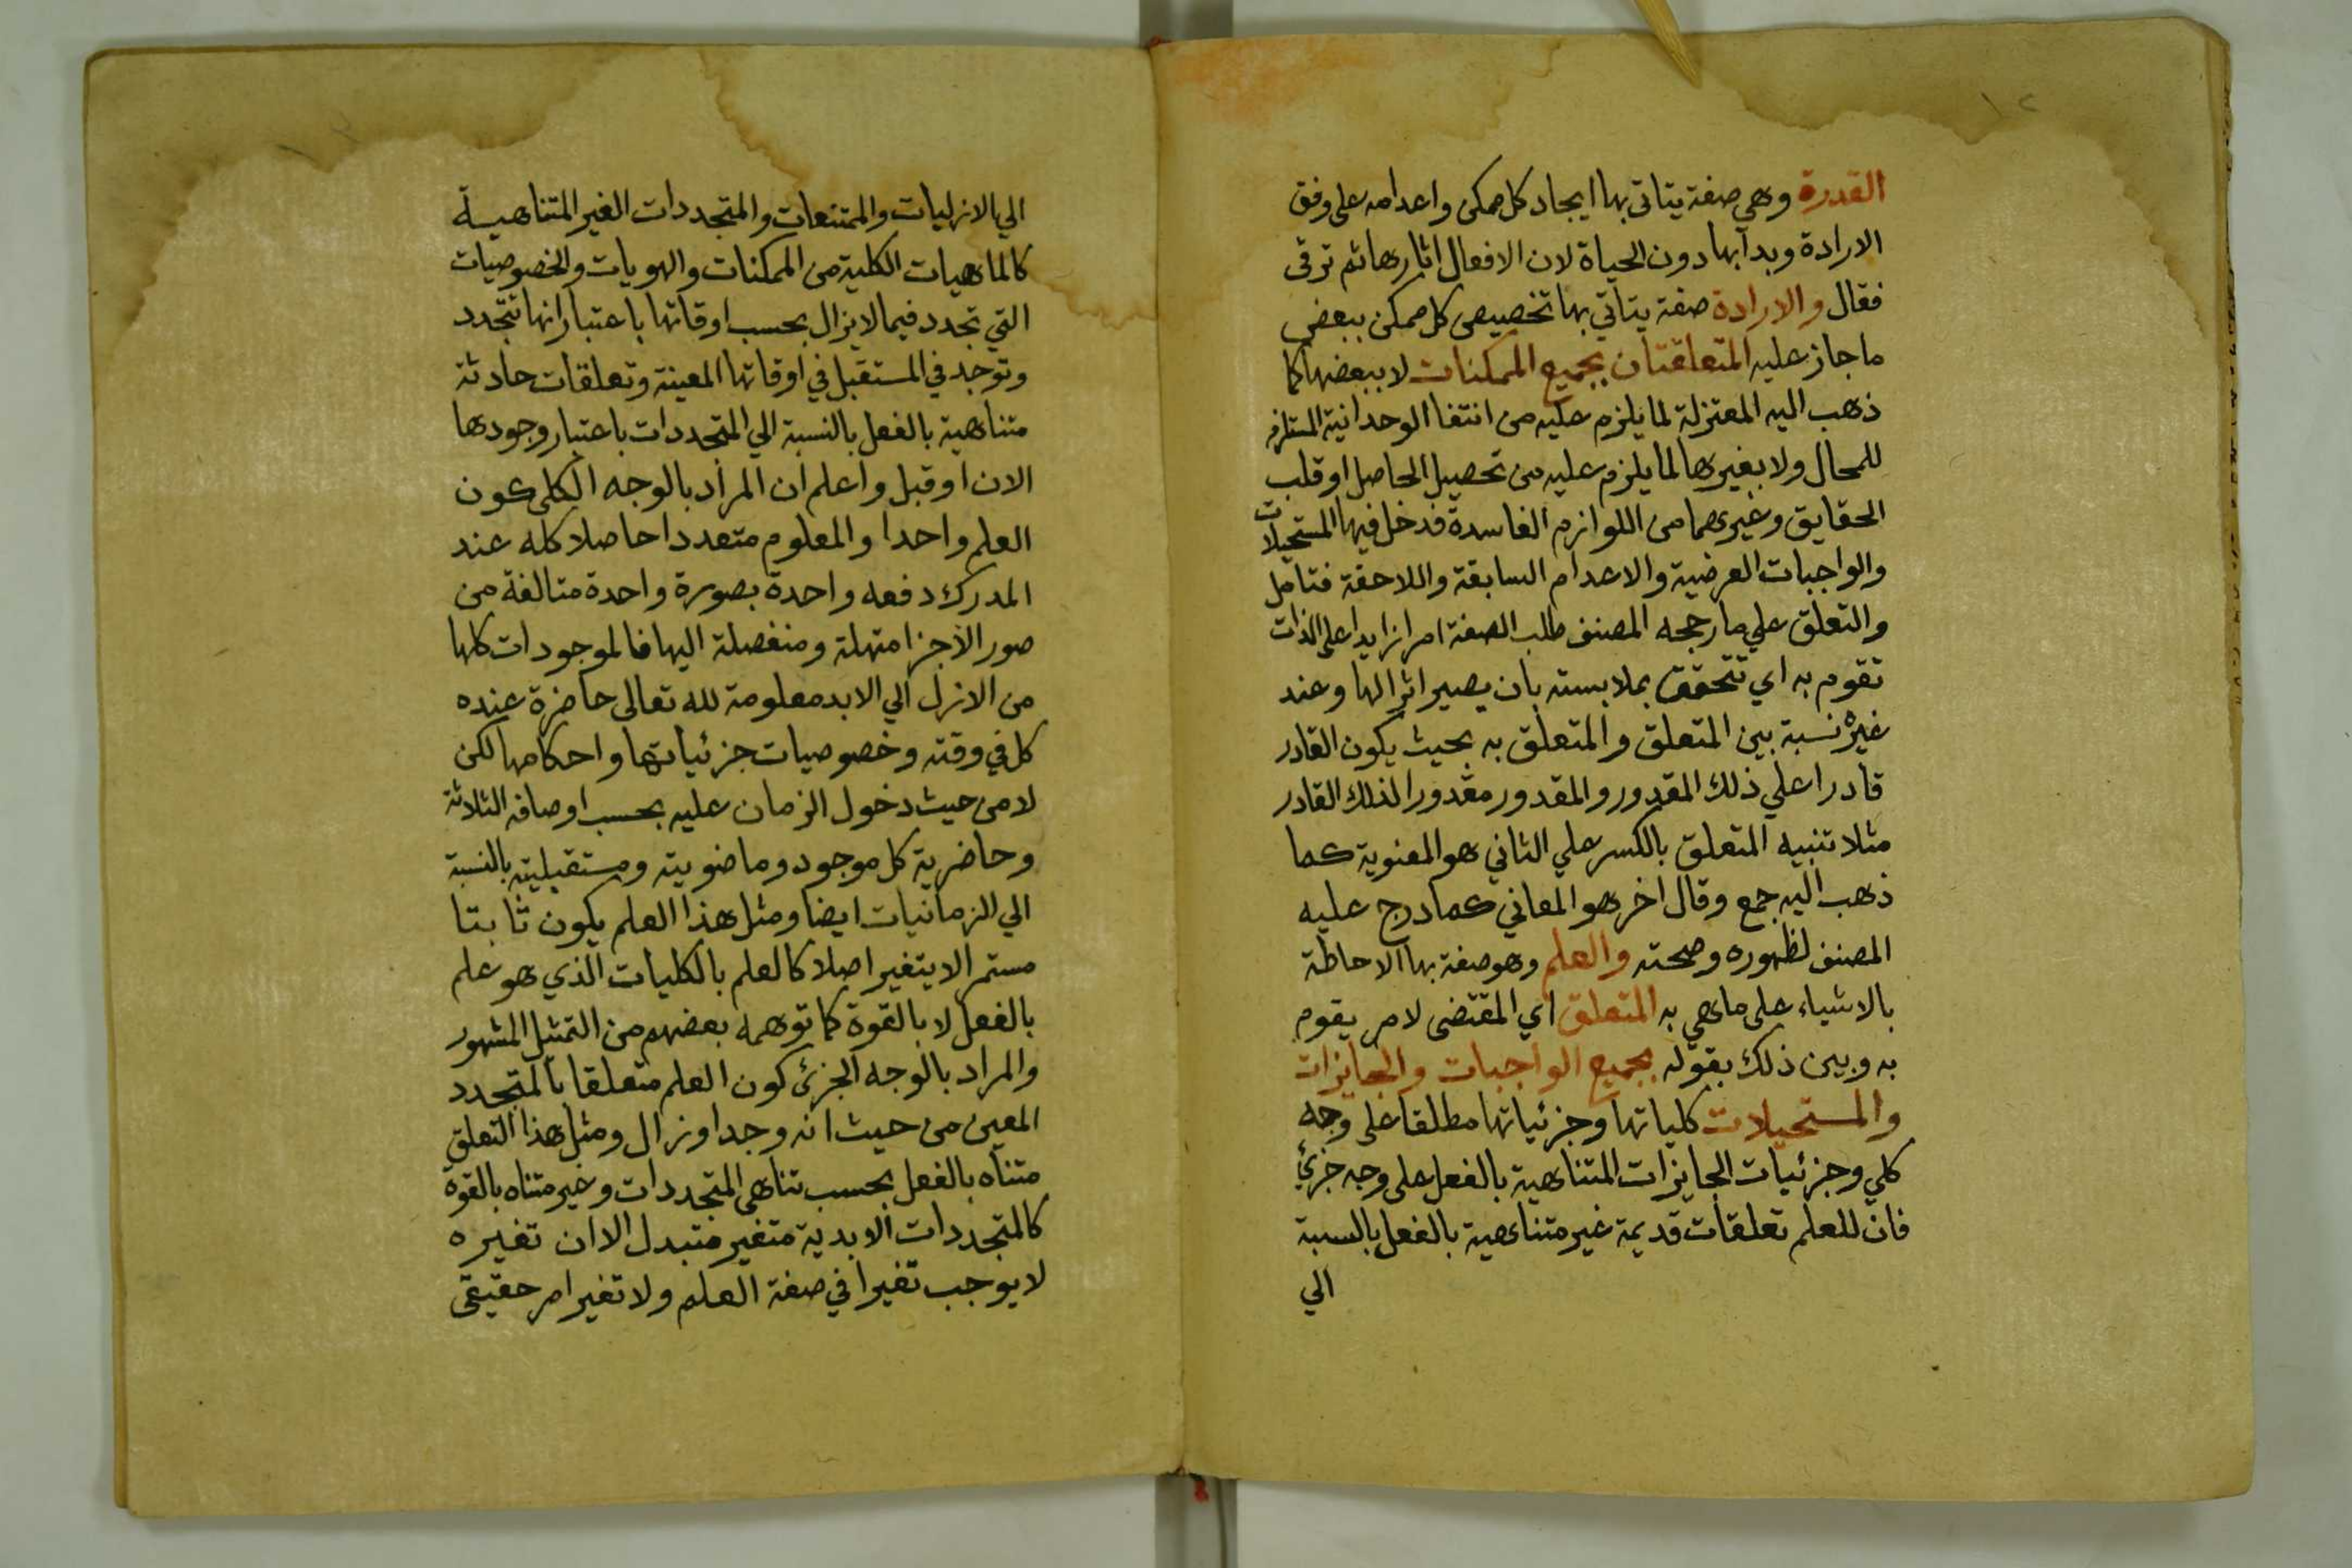 القدرة وهي صفة يتاتى بها ايجاد كل ممكن واعدامه على وفق
الارادة وبدأ بها دون الحياة لان الافعال اثارها ثم ترقى
فقال والارادة صفة يتأتي بها تخصيص كل ممكن ببعض
ما جاز عليه المتعلقتان بجميع الممكنات لا ببعضها كما
ذهب اليه المعتزلة لما يلزم عليه من انتفا الوحدانية المستلزم
للمحال ولا بغيرها لما يلزم عليه من تحصيل الحاصل او قلب
الحقايق وغيرهما من اللوازم الفاسدة فدخل فيها المستحيلات
والواجبات العرضية والاعدام السابقة واللاحقة فتامل
والتعلق علي ما رجحه المصنف طلب الصفة امرا زايدا على الذات
تقوم به اي تتحقق بملابسته بان يصير اثرا لها وعند
غيره نسبة بين المتعلق والمتعلق به بحيث يكون القادر
قادرا علي ذلك المقدور والمقدور مقدورا لذلك القادر
مثلا تنبيه المتعلق بالكسر علي الثاني هو المعنوية كما
ذهب اليه جمع وقال اخر هو المعاني كما درج عليه
المصنف لظهوره وصحته والعلم وهو صفة بها الاحاطة
بالاشياء على ما هي به المتعلق اي المقتضى لامر يقوم
به وبين ذلك بقوله بجميع الواجبات والجايزات
والمستحيلات كلياتها وجزئياتها مطلقا على وجه
كلي وجزئيات الجايزات المتناهية بالفعل على وجه جزئي
فان للعلم تعلقات قديمة غير متناهية بالفعل بالنسبة
الي
الي الازليات والممتنعات والمتجددات الغير المتناهية
كالماهيات الكلية من الممكنات والهويات والخصوصيات
التي تجدد فيما لا يزال بحسب اوقاتها باعتبار انها تتجدد
وتوجد في المستقبل في اوقاتها المعينة وتعلقات حادثة
متناهية بالفعل بالنسبة الي المتجددات باعتبار وجودها
الان او قبل واعلم ان المراد بالوجه الكلي كون
العلم واحدا والمعلوم متعددا حاصلا كله عند
المدرك دفعه واحدة بصورة واحدة متالفة من
صور الاجزا متهلة ومنفصلة اليها فالموجودات كلها
من الازل الي الابد معلومة لله تعالى حاضرة عنده
كل في وقته وخصوصيات جزئياتها واحكامها لكن
لا من حيث دخول الزمان عليه بحسب اوصافه الثلاثة
وحاضرية كل موجود وماضوية ومستقبلية بالنسبة
الي الزمانيات ايضا ومثل هذا العلم يكون ثابتا
مستمرا لا يتغير اصلا كالعلم بالكليات الذي هو علم
بالفعل لا بالقوة كما توهمه بعضهم من التمثيل المشهور
والمراد بالوجه الجزئ كون العلم متعلقا بالمتجدد
المعين من حيث انه وجد او زال ومثل هذا التعلق
متناه بالفعل بحسب تناهي المتجددات وغير متناه بالقوة
كالمتجددات الابدية متغير متبدل الا ان تغيره
لا يوجب تغيرا في صفة العلم ولا تغير امر حقيقي